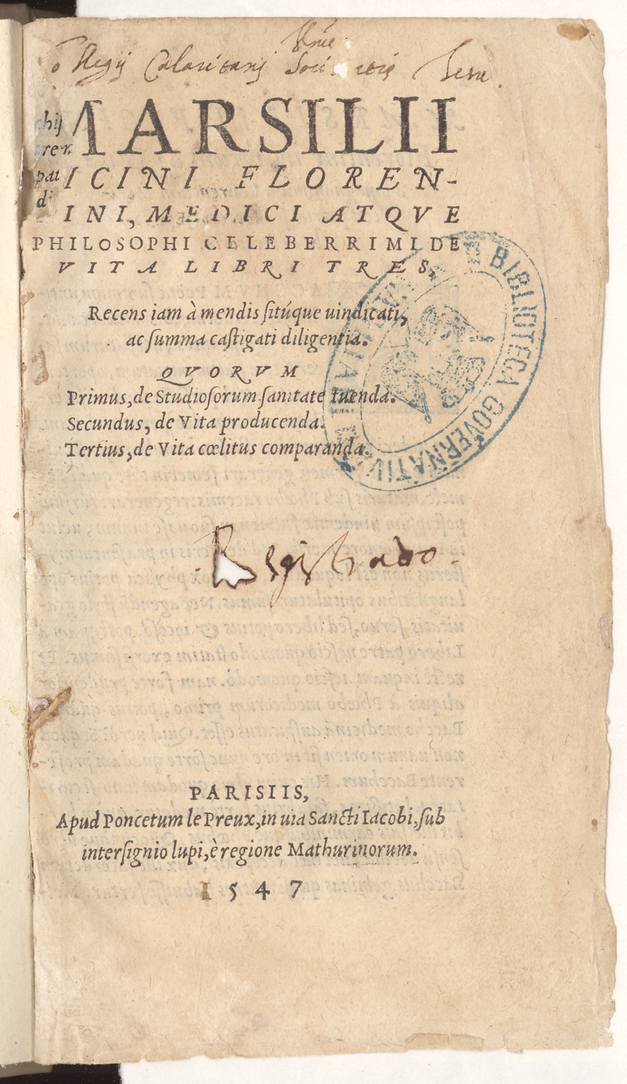 Regij Calaritanj Societatis Iesu
MARSILII
ICINI FLOREN-
INI, MEDICI ATQVE
PHILOSOPHI CELEBERRIMI DE
VITA LIBRI TRES,
Recens iam à mendis sitúque uindicati,
ac summa castigati diligentia.
QVORVM
Primus, de Studiosorum sanitate tuenda.
Secundus, de Vita producenda.
Tertius, de Vita cœlitus comparanda.
BIBLIOTECA GOVERNATIV
Registrado.
PARISIIS,
Apud Poncetum le Preux, in uia Sancti Iacobi, sub
intersignio lupi, è regione Mathurinorum.
1547